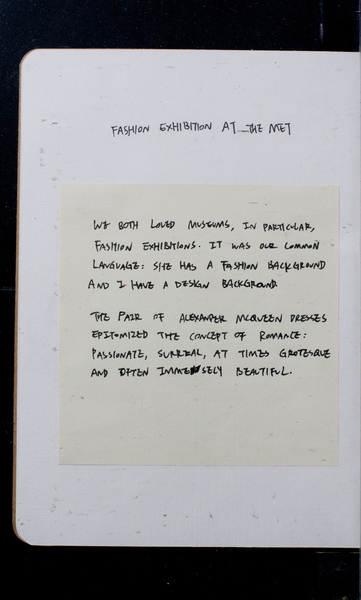 FASHION EXHIBITION AT THE MET
WE BOTH LOVED MUSEUMS, IN PARTICULAR,
FASHION EXHIBITIONS. IT WAS OUR COMMON
LANGUAGE: SHE HAS A FASHION BACKGROUND
AND I HAVE A DESIGN BACKGROUND
THE PAIR OF ALEXANDER MCQUEEN DRESSES
EPITOMIZED THE CONCEPT OF ROMANCE:
PASSIONATE, SURREAL, AT TIMES GROTESQUE
AND OFTEN IMMENSELY BEAUTIFUL.